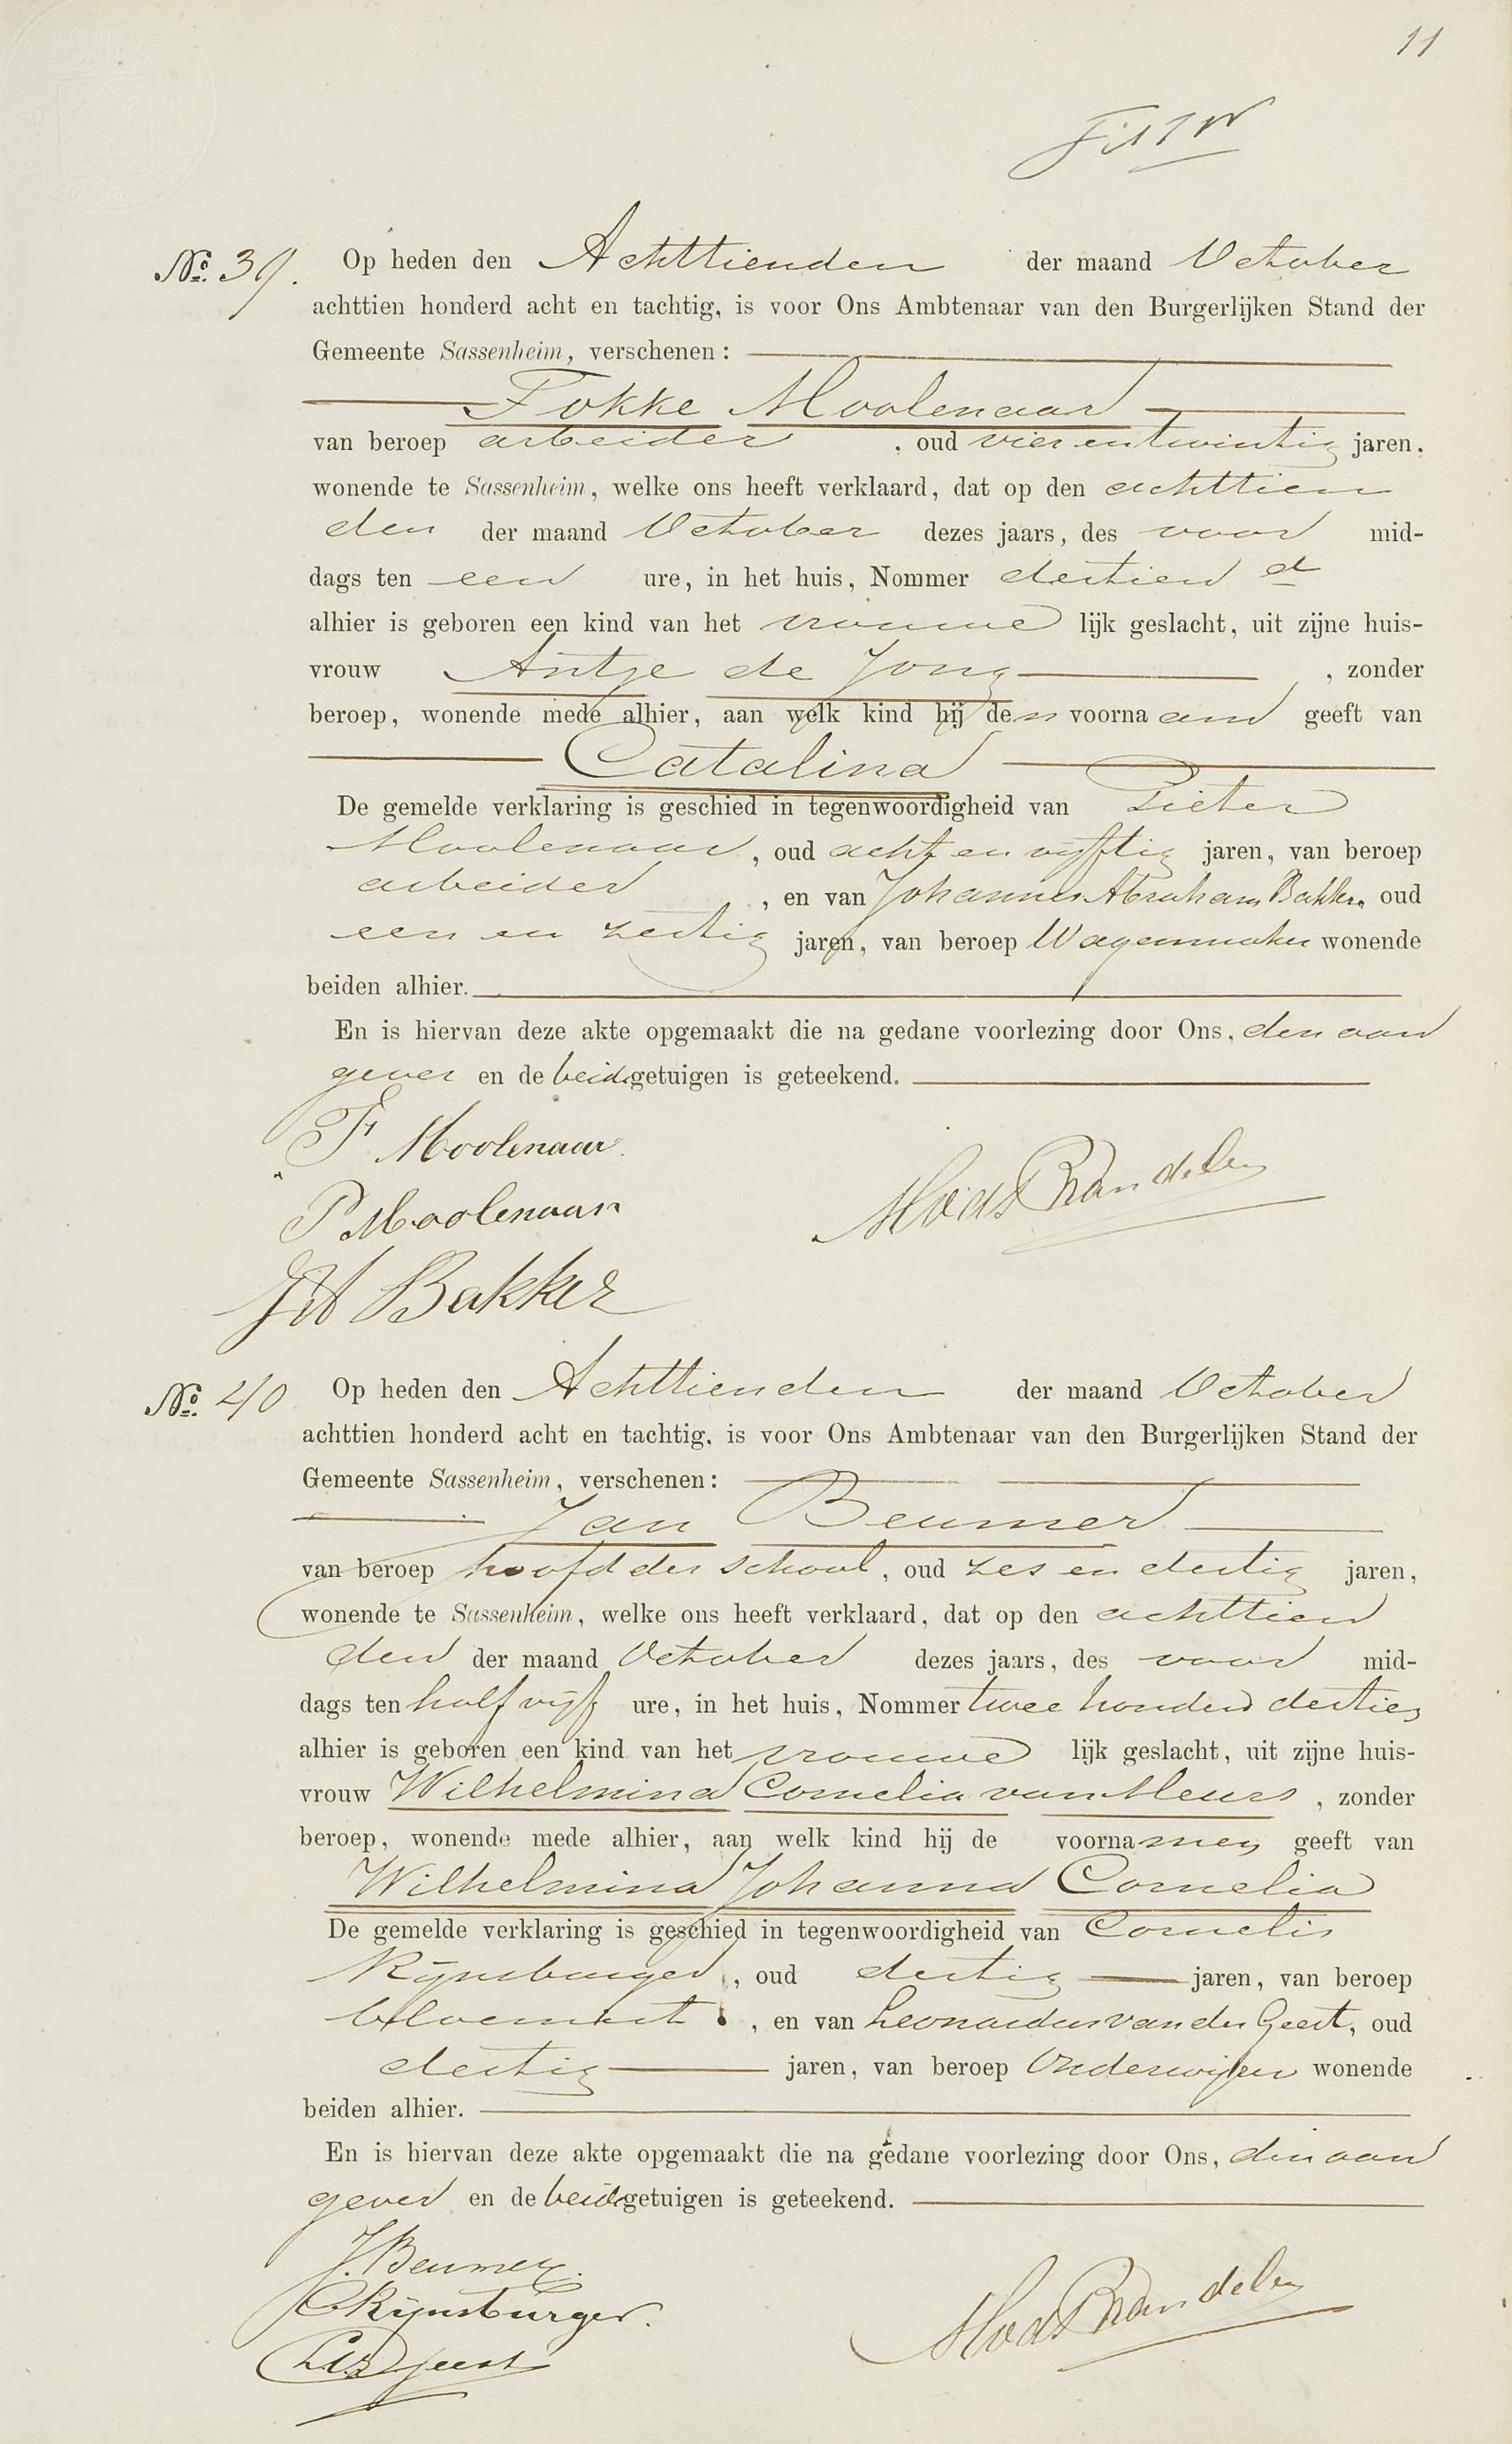 11
No. 39. Op heden den Achttienden der maand October
achttien honderd acht en tachtig, is voor Ons Ambtenaar van den Burgerlijken Stand der
Gemeente Sassenheim, verschenen:
Fokke Moolenaar
van beroep arbeider, oud vier en twintig jaren,
wonende te Sassenheim, welke ons heeft verklaard, dat op den achttien
den der maand October dezes jaars, des voor mid-
dags ten een ure, in het huis, Nommer dertien d
alhier is geboren een kind van het vrouwe lijk geslacht, uit zijne huis-
vrouw Antje de Jong, zonder
beroep, wonende mede alhier, aan welk kind hij den voornaam geeft van
Catalina
De gemelde verklaring is geschied in tegenwoordigheid van Pieter
Moolenaar, oud acht en vijftig jaren, van beroep
arbeider, en van Johannes Abraham Bakker, oud
een en zestig jaren, van beroep Wagenmaker wonende
beiden alhier.
En is hiervan deze akte opgemaakt die na gedane voorlezing door Ons, den aan
gever en de beide getuigen is geteekend.
F Moolenaar.
P Moolenaar
JA Bakker
No. 40 Op heden den Achttienden der maand October
achttien honderd acht en tachtig, is voor Ons Ambtenaar van den Burgerlijken Stand der
Gemeente Sassenheim, verschenen:
Jan Beumer
van beroep hoofd der school, oud zes en dertig jaren,
wonende te Sassenheim, welke ons heeft verklaard, dat op den achttien
den der maand October dezes jaars, des voor mid-
dags ten half vijf ure, in het huis, Nommer twee honderd dertien
alhier is geboren een kind van het vrouwe lijk geslacht, uit zijne huis-
vrouw Wilhelmina Cornelia van Meurs, zonder
beroep, wonende mede alhier, aan welk kind hij de voornamen geeft van
Wilhelmina Johanna Cornelia
De gemelde verklaring is geschied in tegenwoordigheid van Cornelis
Rijnsburger, oud dertig jaren, van beroep
bloemist, en van Leonardus van der Geest, oud
dertig jaren, van beroep Onderwijzer wonende
beiden alhier.
En is hiervan deze akte opgemaakt die na gedane voorlezing door Ons, den aan
gever en de beide getuigen is geteekend.
J. Beumer.
C Rijnsburger.
LvdGeest